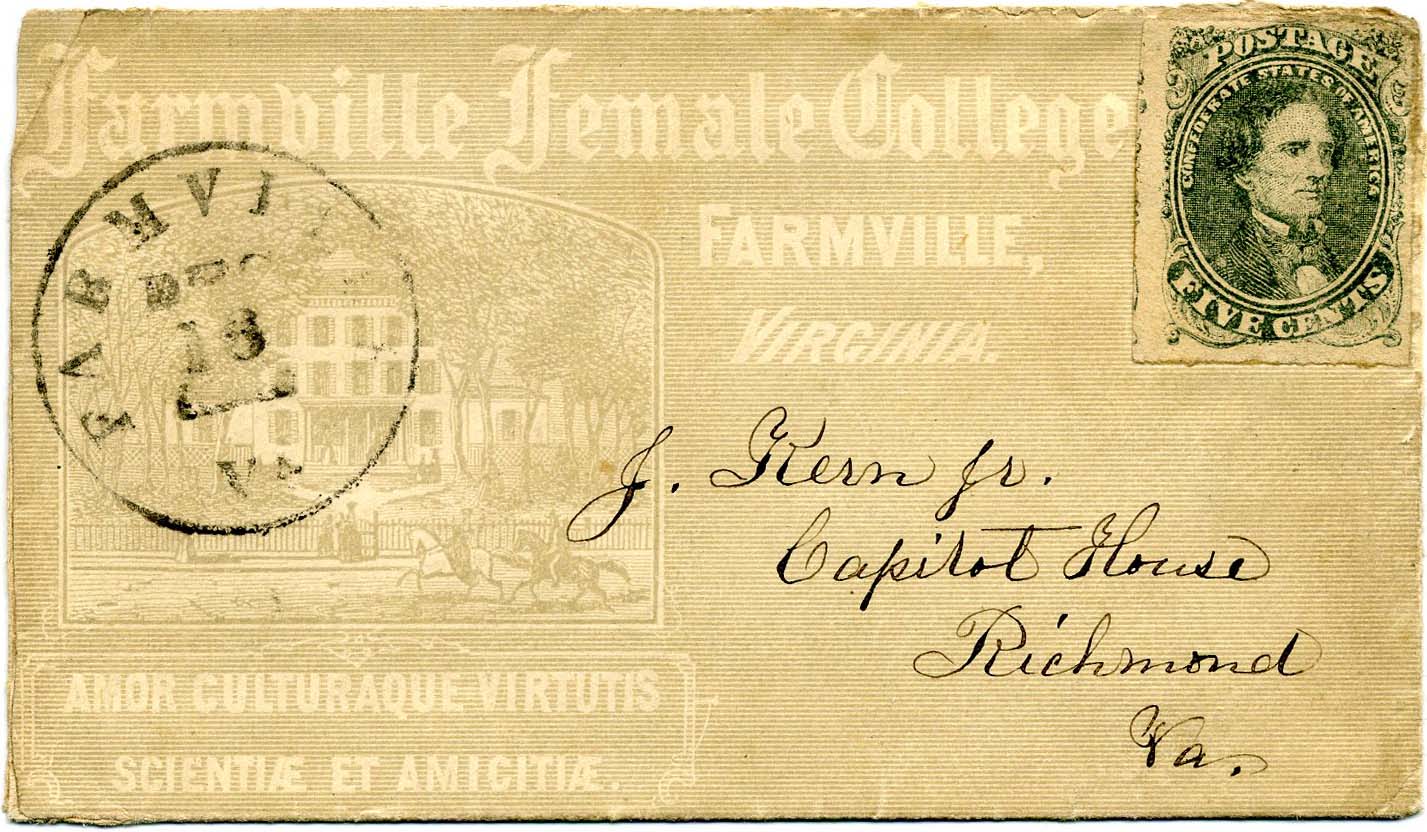 Farmville Female College
FARMVILLE,
VIRGINIA.
POSTAGE
CONFEDERATE STATES OF AMERICA
FIVE CENTS
FARMVI
DEC
18
VA
J. Kern Jr.
Capitol House
Richmond
Va.
AMOR CULTURAQUE VIRTUTIS
SCIENTIÆ ET AMICITIÆ.